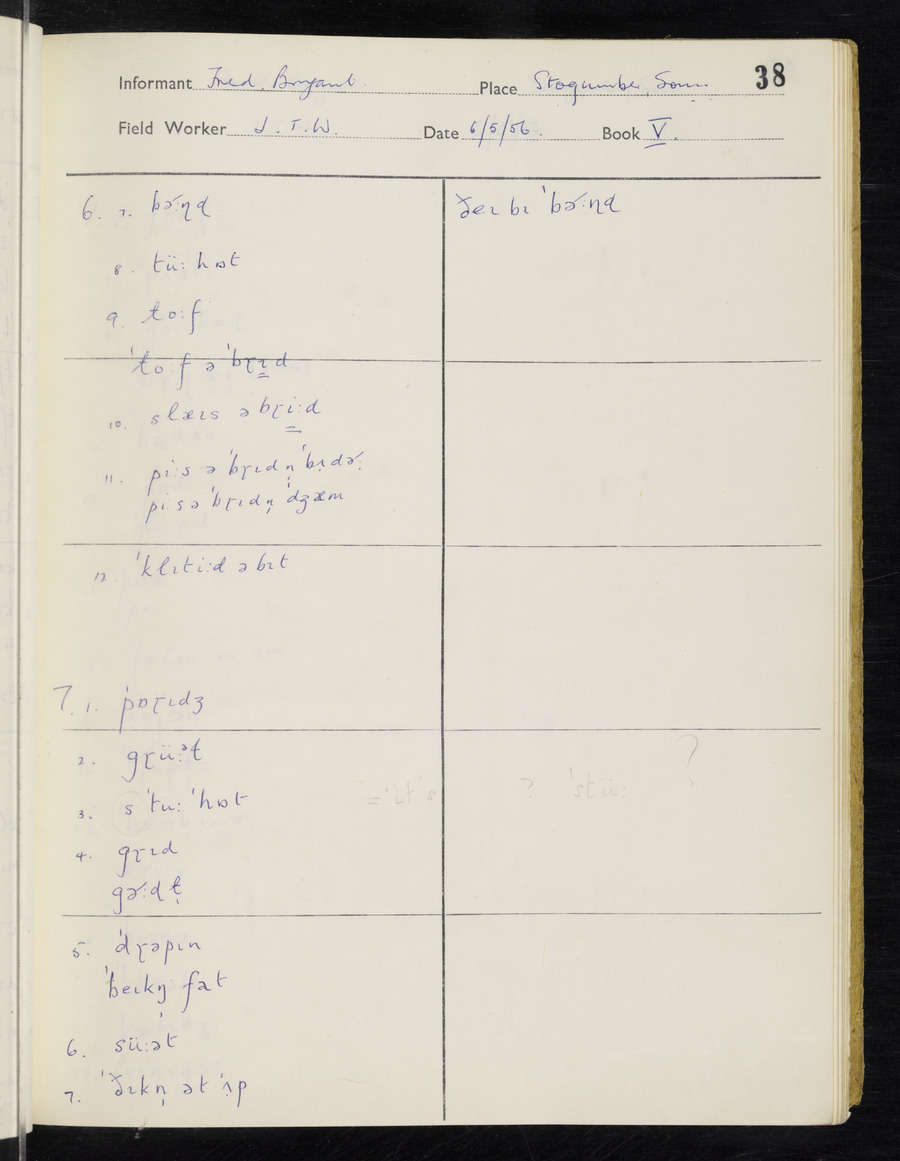 Informant Fred. Bryant. Place Stogumber, Som. 38
Field Worker J. T. W. Date 6/5/56. Book V.
6. 7. bə˞:ɳɖ ðeɪ bɪ ˈbə˞:ɳɖ
8. tü: hɒt
9. to:f
ˈto:f ə ˈbɽɪd
10. slæɪs ə bɽi:d
11. pi:s ə ˈbɽɪdn̩ ˈbɪdə˞:
pi:s ə ˈbɽɪdn̩ ˈdʒæm
12. ˈklɪti:d ə bɪt
7. 1. ˈpɒɽɪdʒ
2. gɽü:ᵊt
3. s ˈtu: ˈhɒt
4. gɽɪd
gə˞:d ʈ
5. ˈdɽəpɪn
ˈbeɪkŋ̩ fat
6. sü:ət
7. ˈðɪkn̩ ət ˈʌp